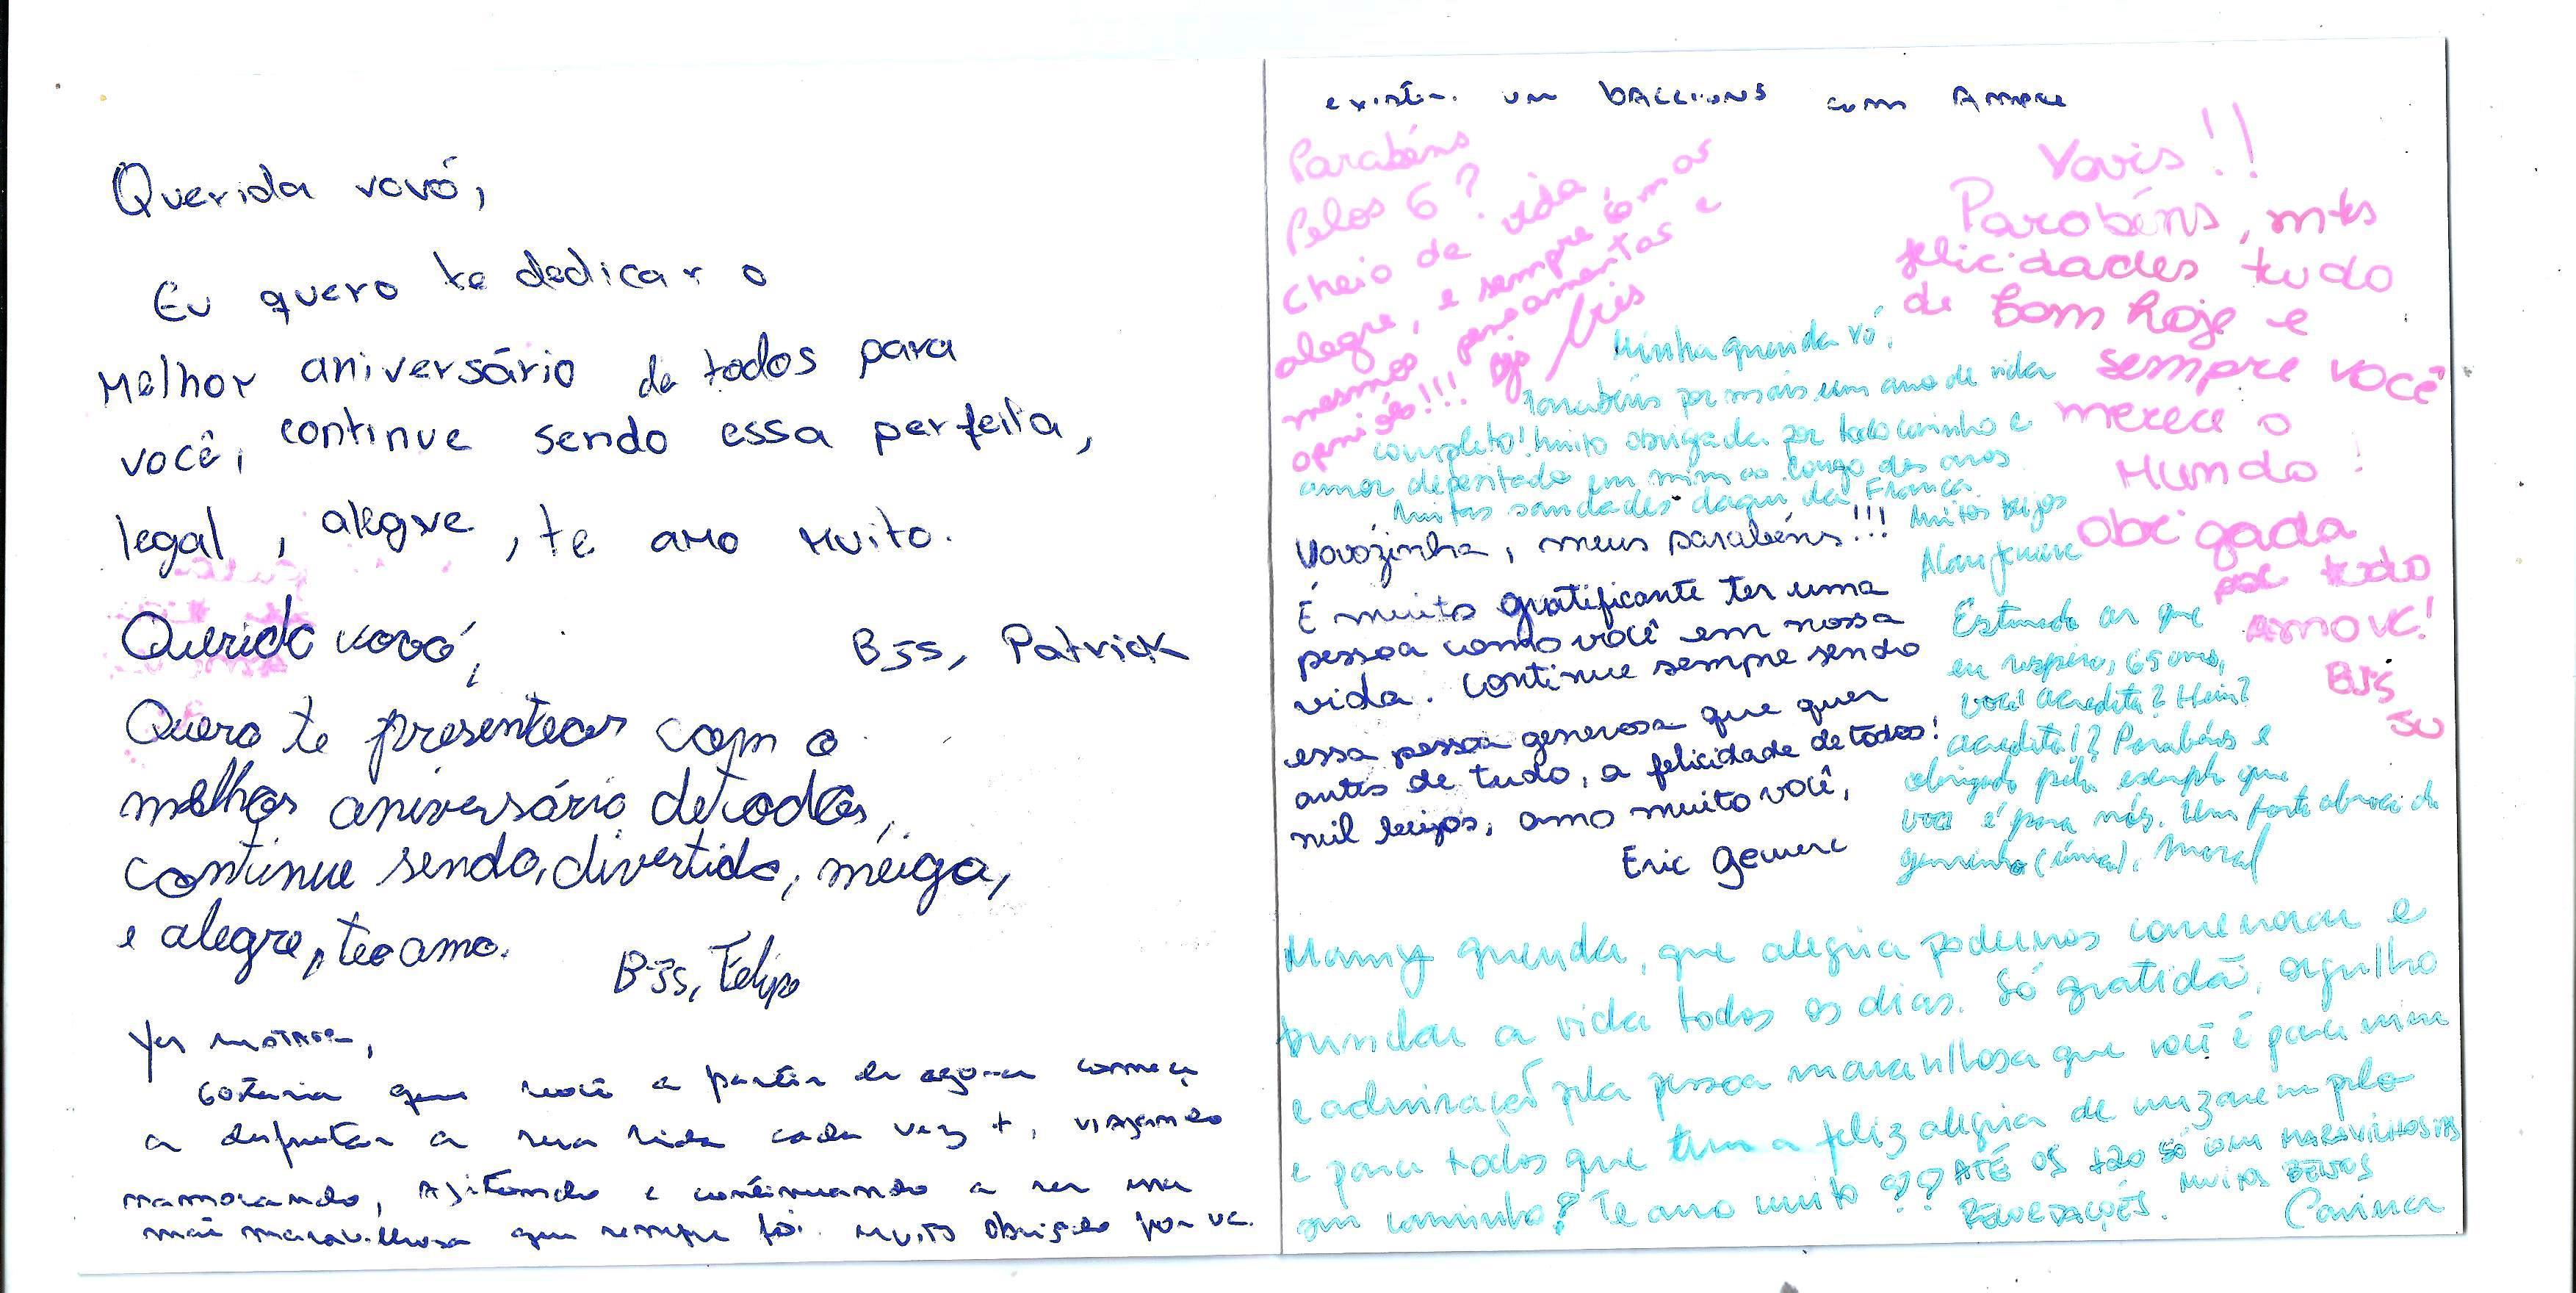 Querida vovó,
Eu quero te dedicar o
Melhor aniversário de todos para
você, continue sendo essa perfeita,
legal, alegre, te amo muito.
Bjs, Patrick
Querida vovó,
Quero te presentear com o
melhor aniversário de todos,
continue sendo, divertida, meiga,
e alegre, te amo.
Bjs, Felipe
Gostaria que você a partir de agora comece
a desfrutar a sua vida cada vez +, viajando
namorando, agitando e continuando a ser uma
mãe maravilhosa que sempre foi. Muito obrigado por vc.
existir. um com Amor
Parabéns
Pelos 6?
cheio de vida,
alegre, e sempre com os
mesmos pensamentos e
opiniões!!! Bjs
Vovis!!
Parabéns, mts
felicidades tudo
de Bom hoje e
sempre você
merece o
Mundo!
Obrigada
por tudo
Amo vc!
Bjs
Su
Minha querida vó,
Parabéns por mais um ano de vida
completo! Muito obrigada por todo carinho e
amor depositado em mim ao longo dos anos
Muitas saudades daqui da França
Muitos beijos
Vovózinha, meus parabéns!!!
É muito gratificante ter uma
pessoa como você em nossa
vida. Continue sempre sendo
essa pessoa generosa que quer
antes de tudo, a felicidade de todos!
mil beijos, amo muito você,
Eric
Estimada ar que
eu respiro, 65 anos,
você acredita? Hein?
acredita!? Parabéns e
obrigado pelo exemplo que
você é para nós. Um forte abraço do
genrinho (único),
Mamy querida, que alegria podermos comemorar e
brindar a vida todos os dias. Só gratidão, orgulho
e admiração pela pessoa maravilhosa que você é para mim
e para todos que tem a feliz alegria de cruzarem pelo
seu caminho! Te amo muito!! ATÉ OS 120 SÓ COM MARAVILHOSAS
REVELAÇÕES. MUITOS BEIJOS